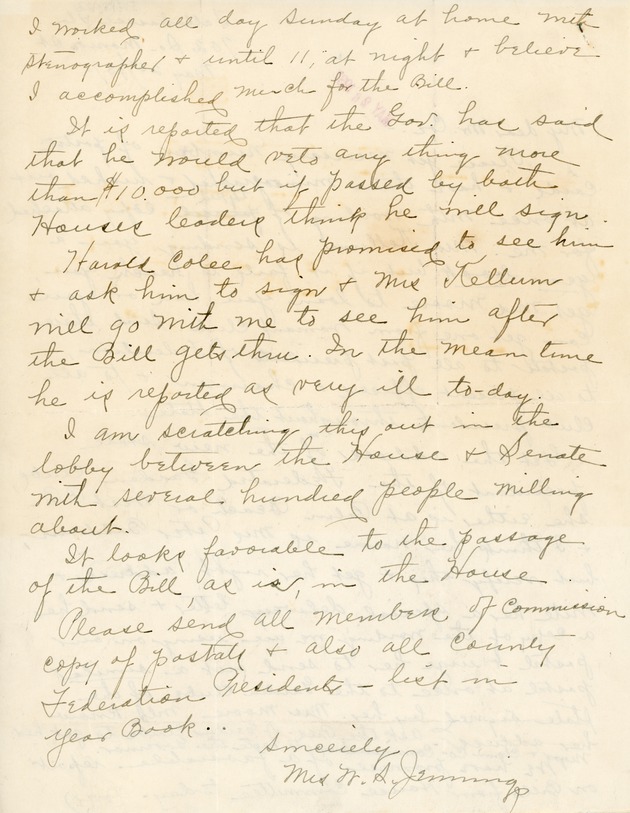 I worked all day Sunday at home with
stenographer & until 11, at night & believe
I accomplished much for the Bill.
It is reported that the Gov. has said
that he would veto any thing more
than $10.000 but if passed by both
Houses leaders think he will sign.
Harold Colee has promised to see him
& ask him to sign & Mrs Kellum
will go with me to see him after
the Bill gets thru. In the mean time
he is reported as very ill to-day.
I am scratching this out in the
lobby between the House & Senate
with several hundred people milling
about.
It looks favorable to the passage
of the Bill, as is, in the House.
Please send all members of Commission
copy of postals & also all County
Federation Presidents - list in
Year Book..
Sincerely
Mrs W. S. Jennings